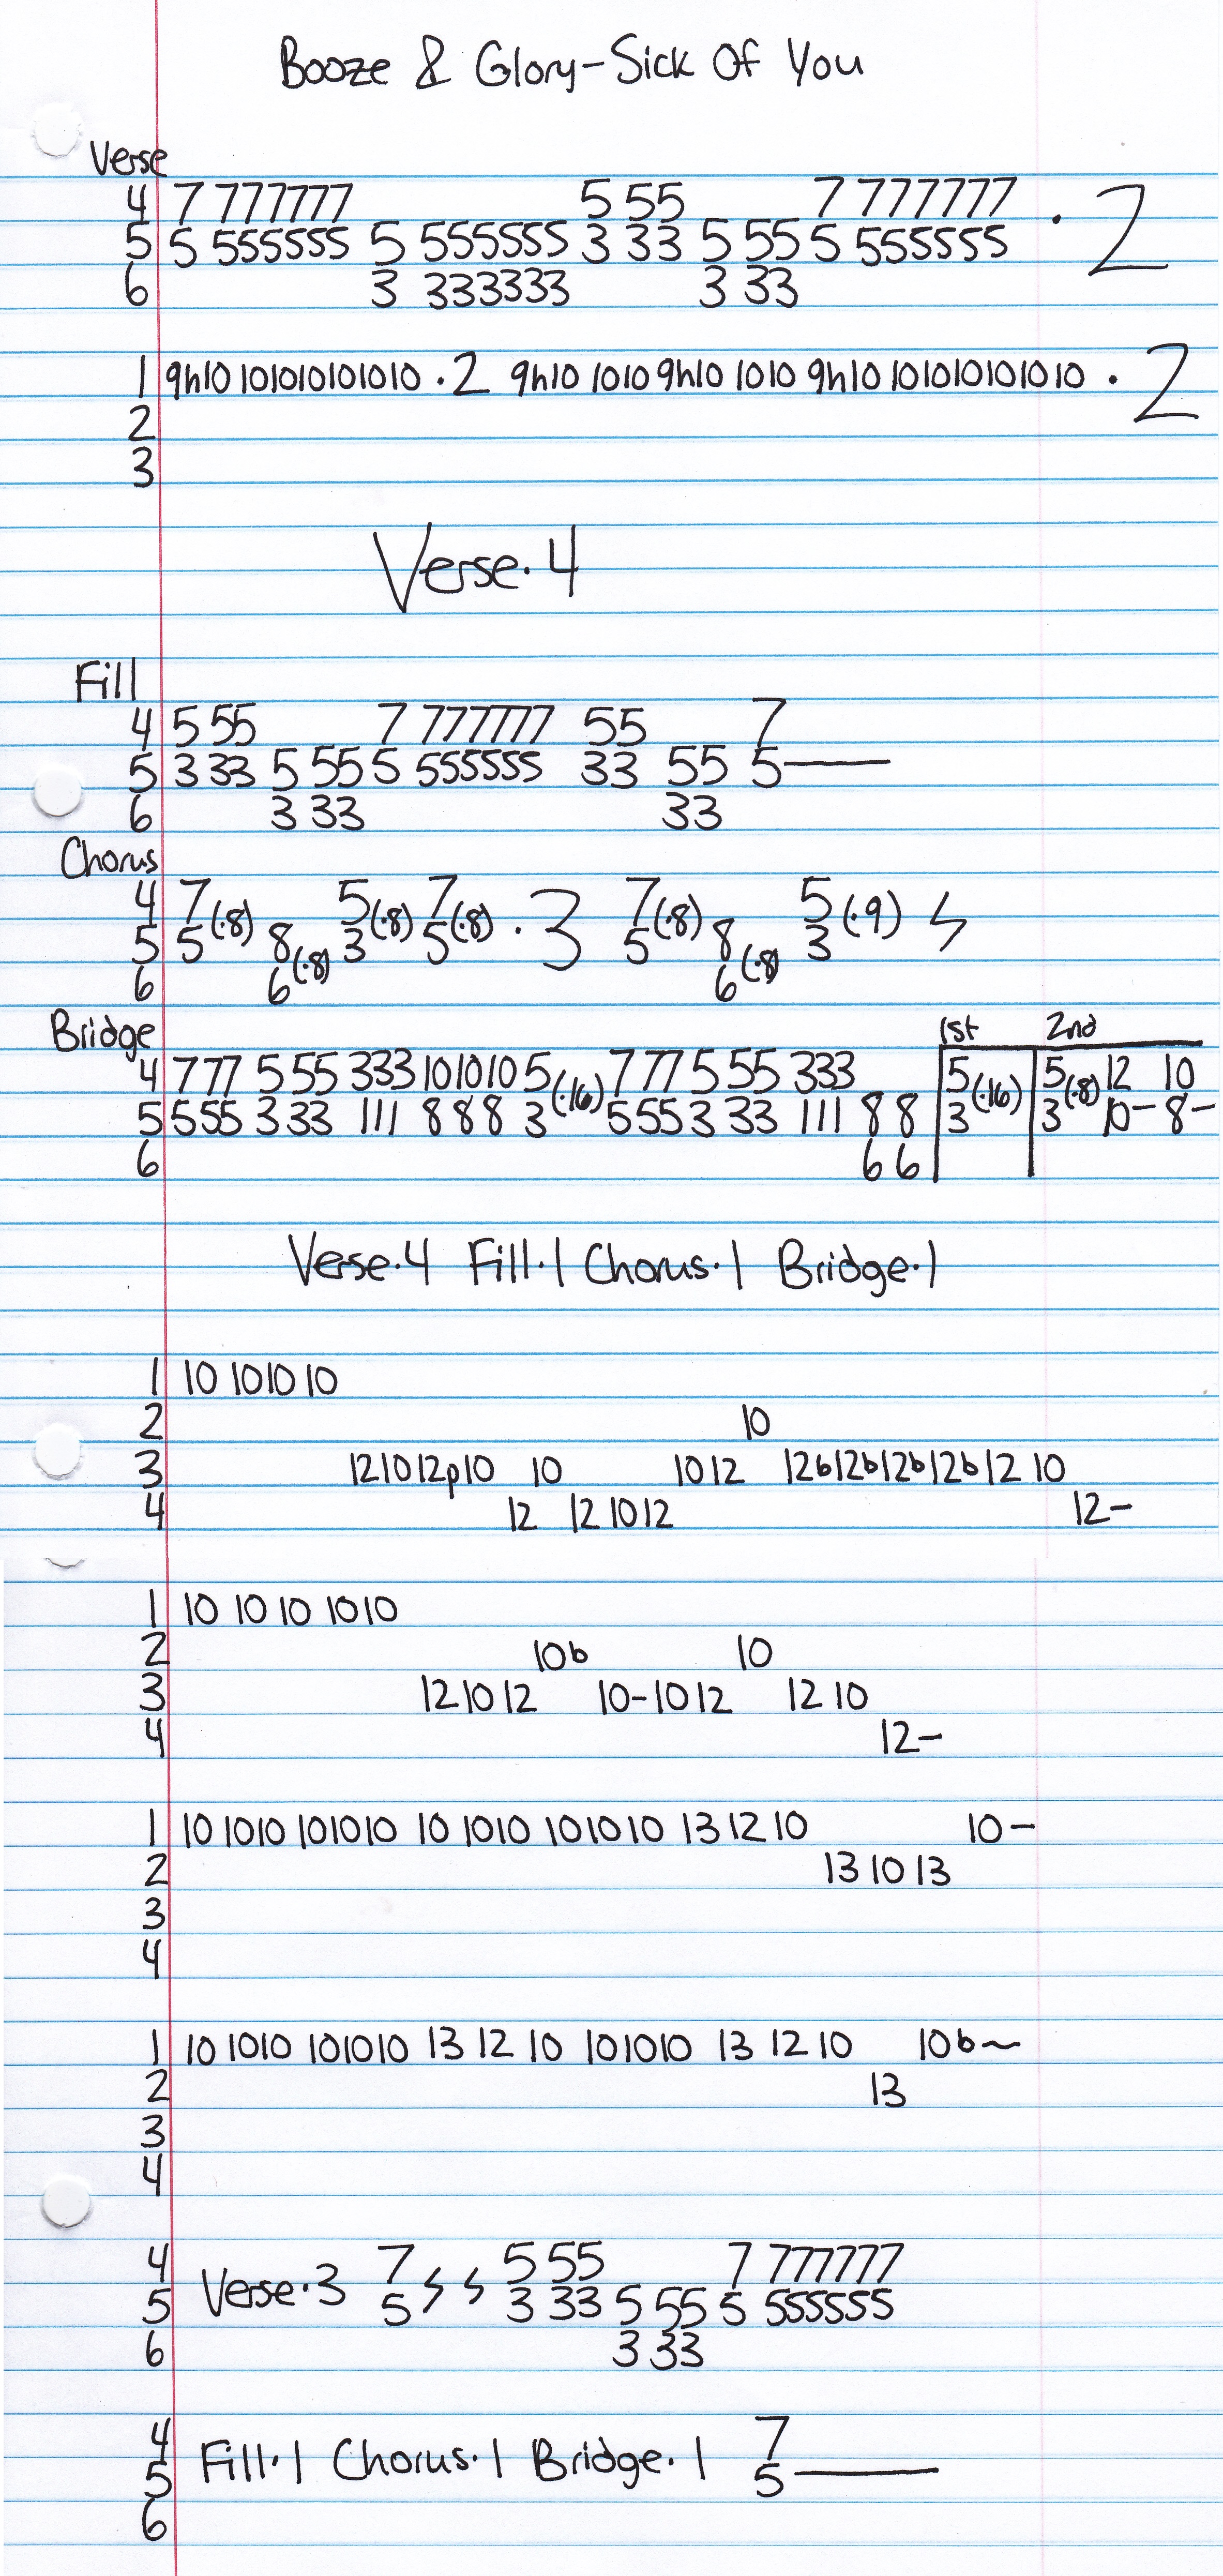 Booze & Glory-Sick Of You
Verse
4 7 777777 5 55 7 777777 · 2
5 5 555555 5 555555 3 33 5 55 5 555555
6 3 333333 3 33
1 9h10 101010101010 · 2 9h10 1010 9h10 1010 9h10 101010101010 · 2
2
3
Verse·4
Fill
4 5 55 7 777777 55 7
5 3 33 5 55 5 555555 33 55 5—
6 3 33 33
Chorus
4 7 5 7 · 3 7 5
5 5(·8) 8 3(·8) 5(·8) 5(·8) 8 3(·9) ϟ
6 6(·8) 6(·8)
Bridge 1st 2nd
4 7 77 5 55 333 101010 5 7 77 5 55 333 5 5 12 10
5 5 55 3 33 111 8 8 8 3(·16) 5 55 3 33 111 8 8 3(·16) 3(·8) 10- 8-
6 6 6
Verse·4 Fill·1 Chorus·1 Bridge·1
1 10 1010 10
2 10
3 12 10 12p10 10 10 12 12b12b12b12b12 10
4 12 12 10 12 12-
1 10 10 10 1010
2 10b 10
3 12 10 12 10-10 12 12 10
4 12-
1 10 1010 101010 10 1010 101010 13 12 10 10-
2 13 10 13
3
4
1 10 1010 101010 13 12 10 101010 13 12 10 10b~
2 13
3
4
4 7 5 55 7 777777
5 Verse·3 5 ϟ ϟ 3 33 5 55 5 555555
6 3 33
4 7
5 Fill·1 Chorus·1 Bridge·1 5—
6